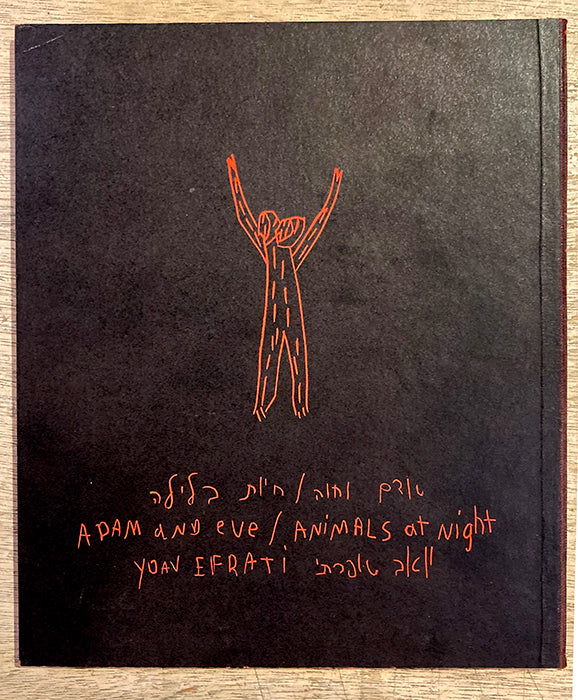 אדם וחוה / חיות בלילה
ADAM and eve / ANiMALS at Night
YOAV EFRATi יואב אפרתי